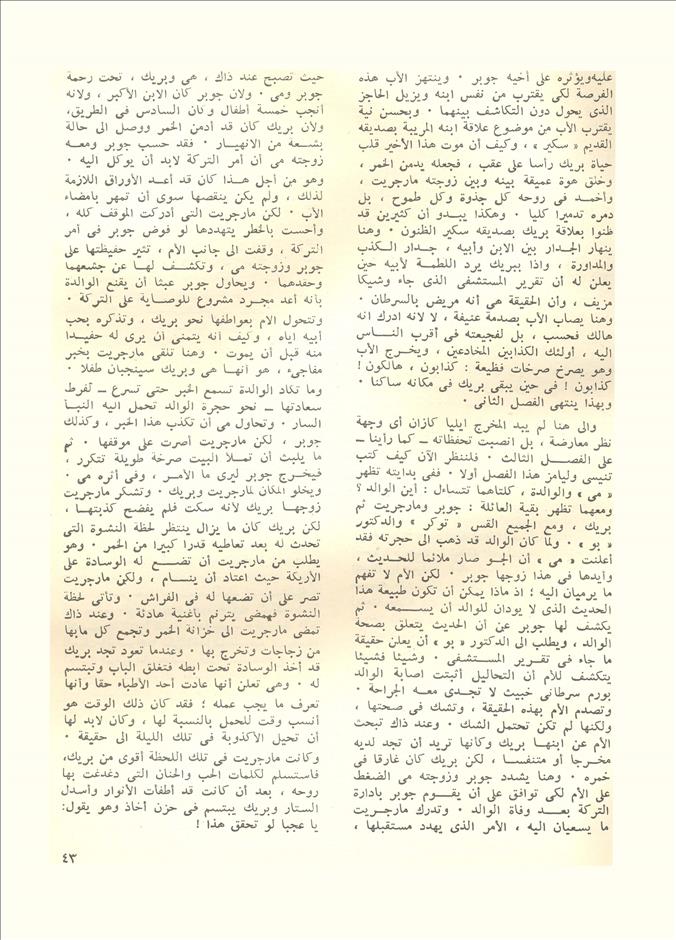 عليه ويؤثره على أخيه جوبر ٠ وينتهز الأب هذه
الفرصة لكى يقترب من نفس ابنه ويزيل الحاجز
الذى يحول دون التكاشف بينهما ٠ وبحسن نية
يقترب الأب من موضوع علاقة ابنه المريبة بصديقه
القديم « سكير » ، وكيف أن موت هذا الأخير قلب
حياة بريك رأسا على عقب ، فجعله يدمن الخمر ،
وخلق هوة عميقة بينه وبين زوجته مارجريت ،
وأخمد فى روحه كل جذوة وكل طموح ، بل
دمره تدميرا كليا ٠ وهكذا يبدو أن كثيرين قد
ظنوا بعلاقة بريك بصديقه سكير الظنون ٠ وهنا
ينهار الجدار بين الابن وأبيه ، جدار الكذب
والمداورة ، واذا ببريك يرد اللطمة لأبيه حين
يعلن له أن تقرير المستشفى الذى جاء وشيكا
مزيف ، وأن الحقيقة هى أنه مريض بالسرطان ٠
وهنا يصاب الأب بصدمة عنيفة ، لا لانه ادرك انه
هالك فحسب ، بل لفجيعته فى أقرب الناس
اليه ، أولئك الكذابين المخادعين ، ويخرج الأب
وهو يصرخ صرخات فظيعة : كذابون ، هالكون !
كذابون ! فى حين يبقى بريك فى مكانه ساكنا ٠
وبهذا ينتهى الفصل الثانى ٠
والى هنا لم يبد المخرج ايليا كازان أى وجهة
نظر معارضة ، بل انصبت تحفظاته ــ كما رأينا ــ
على الفصل الثالث ٠ فلننظر الآن كيف كتب
تنيسى وليامز هذا الفصل أولا ٠ ففى بدايته تظهر
« مى » والوالدة ، كلتاهما تتساءل : أين الوالد ؟
ومعهما تظهر بقية العائلة : جوبر ومارجريت ثم
بريك ، ومع الجميع القس « توكر » والدكتور
« بو » ٠ ولما كان الوالد قد ذهب الى حجرته فقد
أعلنت « مى » أن الجو صار ملائما للحديث ،
وأيدها فى هذا زوجها جوبر ٠ لكن الأم لا تفهم
ما يرميان اليه ؛ اذ ماذا يمكن أن تكون طبيعة هذا
الحديث الذى لا يودان للوالد أن يسمعه ٠ ثم
يكشف لها جوبر عن أن الحديث يتعلق بصحة
الوالد ، ويطلب الى الدكتور « بو » أن يعلن حقيقة
ما جاء فى تقرير المستشفى ٠ وشيئا فشيئا
يتكشف للأم أن التحاليل أثبتت اصابة الوالد
بورم سرطانى خبيث لا تجدى معه الجراحة ٠
وتصدم الأم بهذه الحقيقة ، وتشك فى صحتها ،
ولكنها لم تكن تحتمل الشك ٠ وعند ذاك تبحث
الأم عن ابنها بريك وكأنها تريد أن تجد لديه
مخرجا أو متنفسا ، لكن بريك كان غارقا فى
خمره ٠ وهنا يشدد جوبر وزوجته مى الضغط
على الأم لكى توافق على أن يقوم جوبر بادارة
التركة بعد وفاة الوالد ٠ وتدرك مارجريت
ما يسعيان اليه ، الأمر الذى يهدد مستقبلها ،
حيث تصبح عند ذاك ، هى وبريك ، تحت رحمة
جوبر ومى ٠ ولان جوبر كان الابن الأكبر ، ولانه
أنجب خمسة أطفال وكان السادس فى الطريق،
ولأن بريك كان قد أدمن الخمر ووصل الى حالة
بشعة من الانهيار ٠ فقد حسب جوبر ومعه
زوجته مى أن أمر التركة لابد أن يوكل اليه ٠
وهو من أجل هذا كان قد أعد الأوراق اللازمة
لذلك ، ولم يكن ينقصها سوى أن تمهر بامضاء
الأب ٠ لكن مارجريت التى أدركت الموقف كله ،
وأحست بالخطر يتهددها لو فوض جوبر فى أمر
التركة ، وقفت الى جانب الأم ، تثير حفيظتها على
جوبر وزوجته مى ، وتكشف لها عن جشعهما
وحقدهما ٠ ويحاول جوبر عبثا أن يقنع الوالدة
بأنه أعد مجرد مشروع للوصاية على التركة ٠
وتتحول الأم بعواطفها نحو بريك ، وتذكره بحب
أبيه اياه ، وكيف أنه يتمنى أن يرى له حفيدا
منه قبل أن يموت ٠ وهنا تلقى مارجريت بخبر
مفاجىء ، هو أنها هى وبريك سينجبان طفلا ٠
وما تكاد الوالدة تسمع الخبر حتى تسرع ــ لفرط
سعادتها ــ نحو حجرة الوالد تحمل اليه النبأ
السار ٠ وتحاول مى أن تكذب هذا الخبر ، وكذلك
جوبر ، لكن مارجريت أصرت على موقفها ٠ ثم
ما يلبث أن تملأ البيت صرخة طويلة تتكرر ،
فيخرج جوبر ليرى ما الأمر ، وفى أثره مى ٠
ويخلو المكان لمارجريت وبريك ٠ وتشكر مارجريت
زوجها بريك لأنه سكت فلم يفضح كذبتها ،
لكن بريك كان ما يزال ينتظر لحظة النشوة التى
تحدث له بعد تعاطيه قدرا كبيرا من الخمر ٠ وهو
يطلب من مارجريت أن تضع له الوسادة على
الأريكة حيث اعتاد أن ينام ، ولكن مارجريت
تصر على أن تضعها له فى الفراش ٠ وتأتى لحظة
النشوة فيمضى يترنم بأغنية هادئة ٠ وعند ذاك
تمضى مارجريت الى خزانة الخمر وتجمع كل مابها
من زجاجات وتخرج بها ٠ وعندما تعود تجد بريك
قد أخذ الوسادة تحت ابطه فتغلق الباب وتبتسم
له ٠ وهى تعلن أنها عادت أحد الأطباء حقا وأنها
تعرف ما يجب عمله ؛ فقد كان ذلك الوقت هو
أنسب وقت للحمل بالنسبة لها ، وكان لابد لها
أن تحيل الأكذوبة فى تلك الليلة الى حقيقة ٠
وكانت مارجريت فى تلك اللحظة أقوى من بريك،
فاستسلم لكلمات الحب والحنان التى دغدغت بها
روحه ، بعد أن كانت قد أطفأت الأنوار وأسدل
الستار وبريك يبتسم فى حزن أخاذ وهو يقول:
يا عجبا لو تحقق هذا !
٤٣